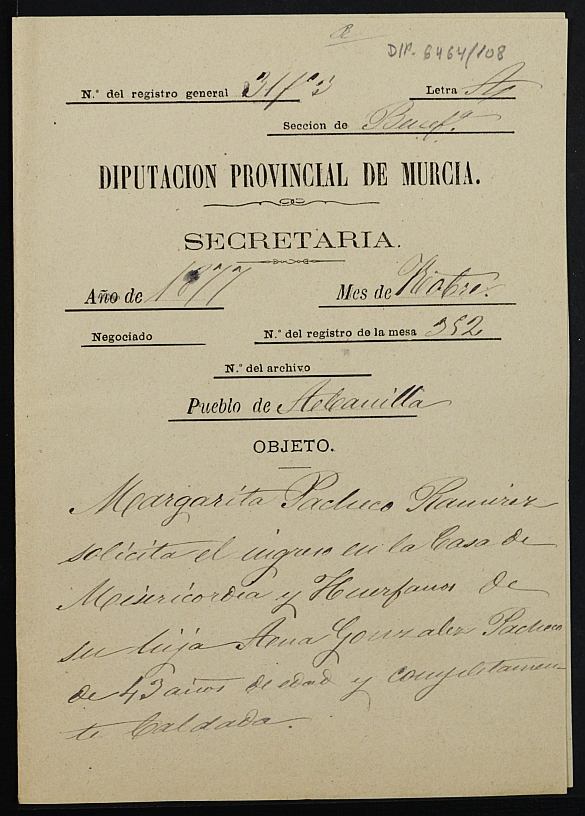 DIP. 6464/108
N.º del registro general
Letra A
Seccion de Benef.ª
DIPUTACION PROVINCIAL DE MURCIA.
SECRETARIA.
Año de 1877 Mes de
Negociado N.º del registro de la mesa 352
N.º del archivo
Pueblo de Abanilla
OBJETO.
Margarita Pacheco Ramirez
solicita el ingreso en la Casa de
Misericordia y Huerfanos de
su hija Ana Gonzalez Pacheco
de 43 años de edad y completamen-
te baldada.